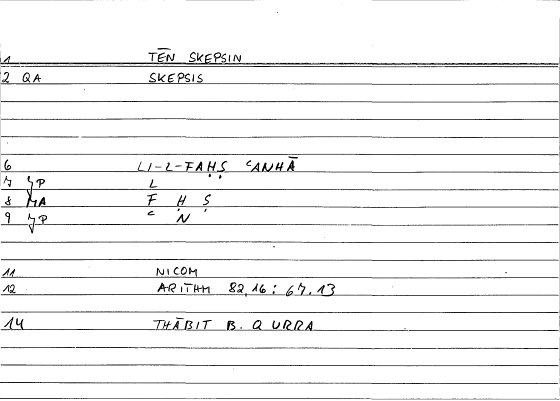 1 TĒN SKEPSIN
2 QA SKEPSIS
6 LI-L-FAḤṢ ʿANHĀ
7 YP L
8 MA F Ḥ Ṣ
9 YP ʿ N
11 NICOM
12 ARITHM 82,16 : 67.13
14 THĀBIT B. QURRA